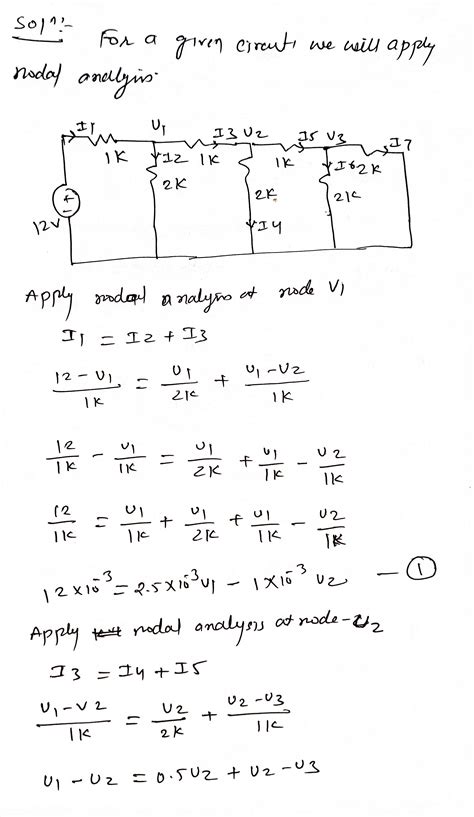 Soln:-
For a given circuit, we will apply
nodal analysis.
I1 V1 I3 V2 I5 V3 I7
1K I2 1K 1K I6 2K
2K 2K 2K
12V I4
Apply nodal analysis at node V1
I1 = I2 + I3
12 - V1 / 1K = V1 / 2K + V1 - V2 / 1K
12 / 1K - V1 / 1K = V1 / 2K + V1 / 1K - V2 / 1K
12 / 1K = V1 / 1K + V1 / 2K + V1 / 1K - V2 / 1K
12 x 10^-3 = 2.5 x 10^-3 V1 - 1 x 10^-3 V2 — ①
Apply nodal analysis at node - V2
I3 = I4 + I5
V1 - V2 / 1K = V2 / 2K + V2 - V3 / 1K
V1 - V2 = 0.5 V2 + V2 - V3